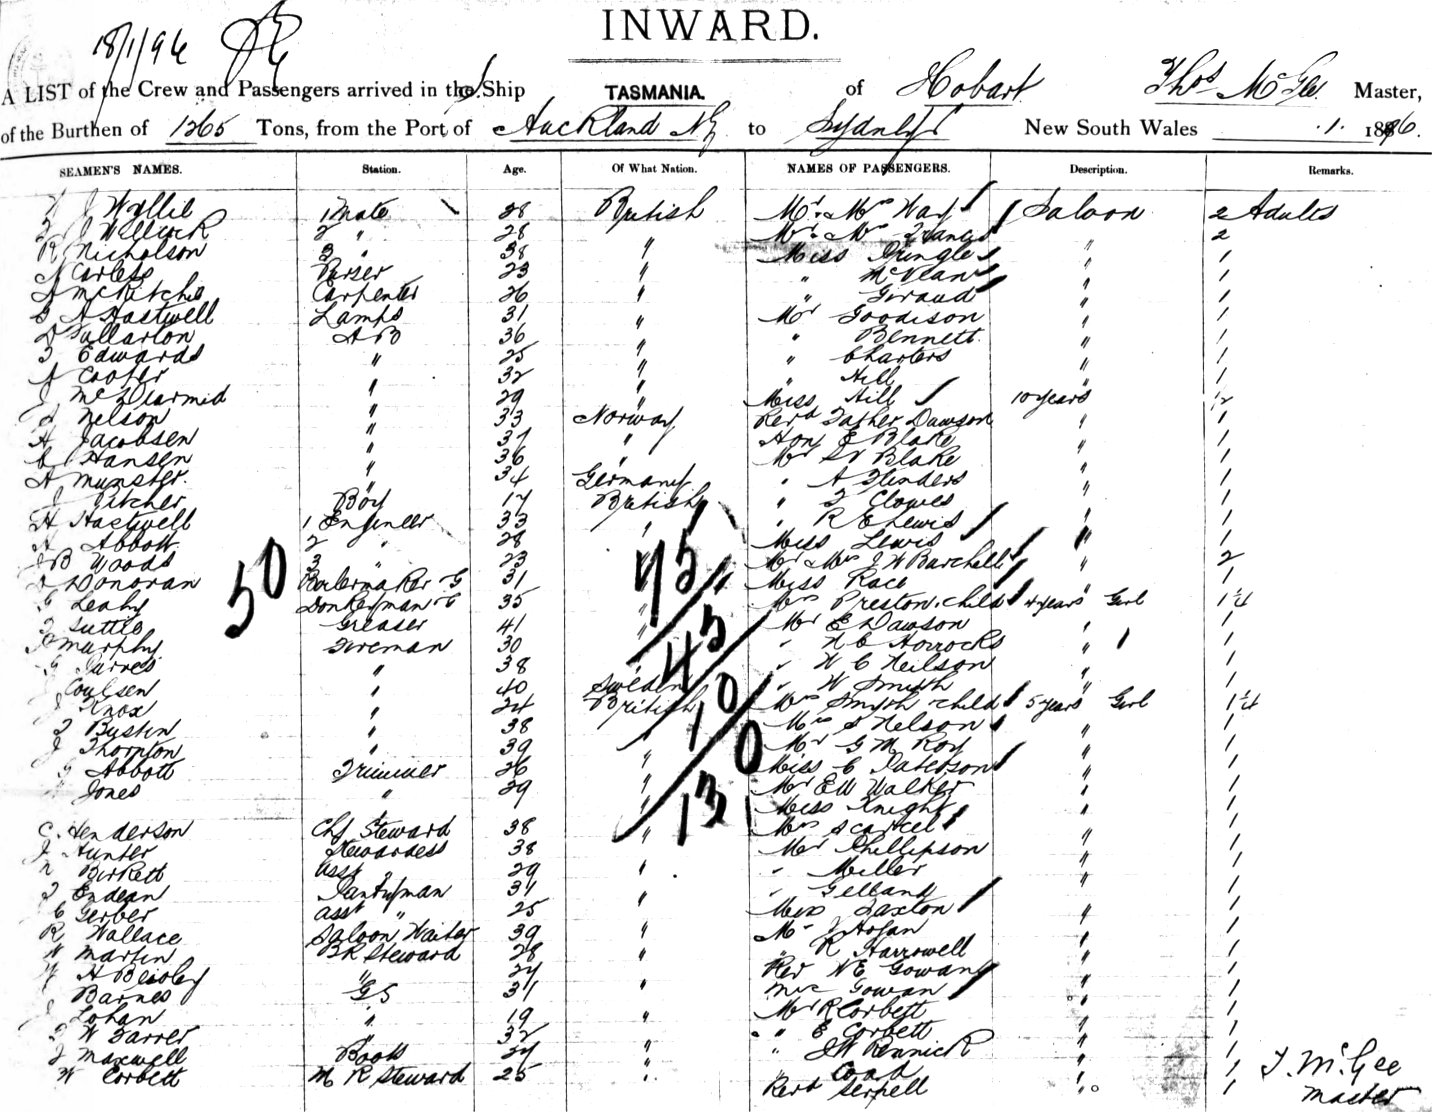 INWARD.
18/1/96
A LIST of the Crew and Passengers arrived in the Ship TASMANIA. of Hobart Thos McGee Master,
of the Burthen of 1265 Tons, from the Port of Auckland NZ to Sydney New South Wales .1. 1896.
SEAMEN'S NAMES. Station. Age. Of What Nation. NAMES OF PASSENGERS. Description. Remarks.
J Wyllie 1 Mate 28 British Mr & Mrs Way Saloon 2 Adults
2 " 28 Mr & Mrs " 2
R Nicholson 3 " 38 " Miss Pringle " 1
Carless Purser 23 " " McVean 1
A McRitchie Carpenter 26 " " Geraud " 1
A Hastwell Lamps 31 " Mr Goodison " 1
D Fullarton A B 36 " " Bennett " 1
T Edwards " 25 " " Charters " 1
A Cooper " 32 " " Hill " 1
J McDiarmid " 29 " Miss Hill 10 years 1/2
Nelson " 33 Norway Revd Father Dawson " 1
A Jacobsen " 37 " Hon E Blake " 1
C Hansen " 36 " Mr Blake " 1
A Munster. " 34 Germany " A Flinders " 1
J Pitcher Boy 17 British " T Clowes " 1
H Hastwell 1 Engineer 33 " " R E Lewis " 1
A Abbott 2 " 28 Miss Lewis " 1
J B Woods 3 " 23 Mr & Mrs J W Barchell " 2
Donovan Boilermaker G 31 " Miss Race " 1
G Leahy Donkeyman G 35 " Mrs Preston child 4 years Girl 1 1/4
T Tuttle Greaser 41 " Mr E Dawson " 1
Murphy Fireman 30 " H E Horrocks " 1
G " 38 " W C Neilson " 1
J Coulsen " 40 Sweden " W Smyth " 1
J Knox " 24 British Mrs Smyth child 5 years Girl 1 1/4
T Bustin " 38 Mrs S Nelson " 1
J Thornton " 39 " Mr G M Roy " 1
G Abbott Trimmer 26 " Miss C Paterson " 1
Jones " 29 " Mr E W Walker " 1
Miss Knight " 1
C. Henderson Chf Steward 38 " Mrs 1
J Hunter Stewardess 38 Mr Phillipson " 1
Birkett asst " 29 " " Miller " 1
T Endean Pantryman 31 " " Gelland 1
C Gerber asst " 25 Miss Saxton " 1
R Wallace Saloon Waiter 39 " Mr J Hogan " 1
W Martin BR Steward 28 " " R Harrowell " 1
W H " 24 Rev W E Gowan " 1
Barnes G S 31 " Mrs Gowan 1
J Lohan " 19 " Mr R Corbett " 1
W Farrer " 32 " " E Corbett " 1
J Maxwell Books 24 " " J W Rennick " 1
W Corbett M R Steward 25 " " Coad " 1
Revd Serpell " 1
50
75
45
10
130
131
T. McGee
Master